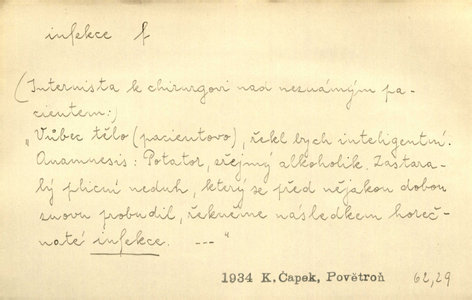 infekce f
(Internista k chirurgovi nad neznámým pa-
cientem:)
"Vůbec tělo (pacientovo), řekl bych inteligentní.
Anamnesis: Potator, zřejmý alkoholik. Zastara-
lý plicní neduh, který se před nějakou dobou
znovu probudil, řekněme následkem horeč-
naté infekce. --- "
1934 K. Čapek, Povětroň 62,29